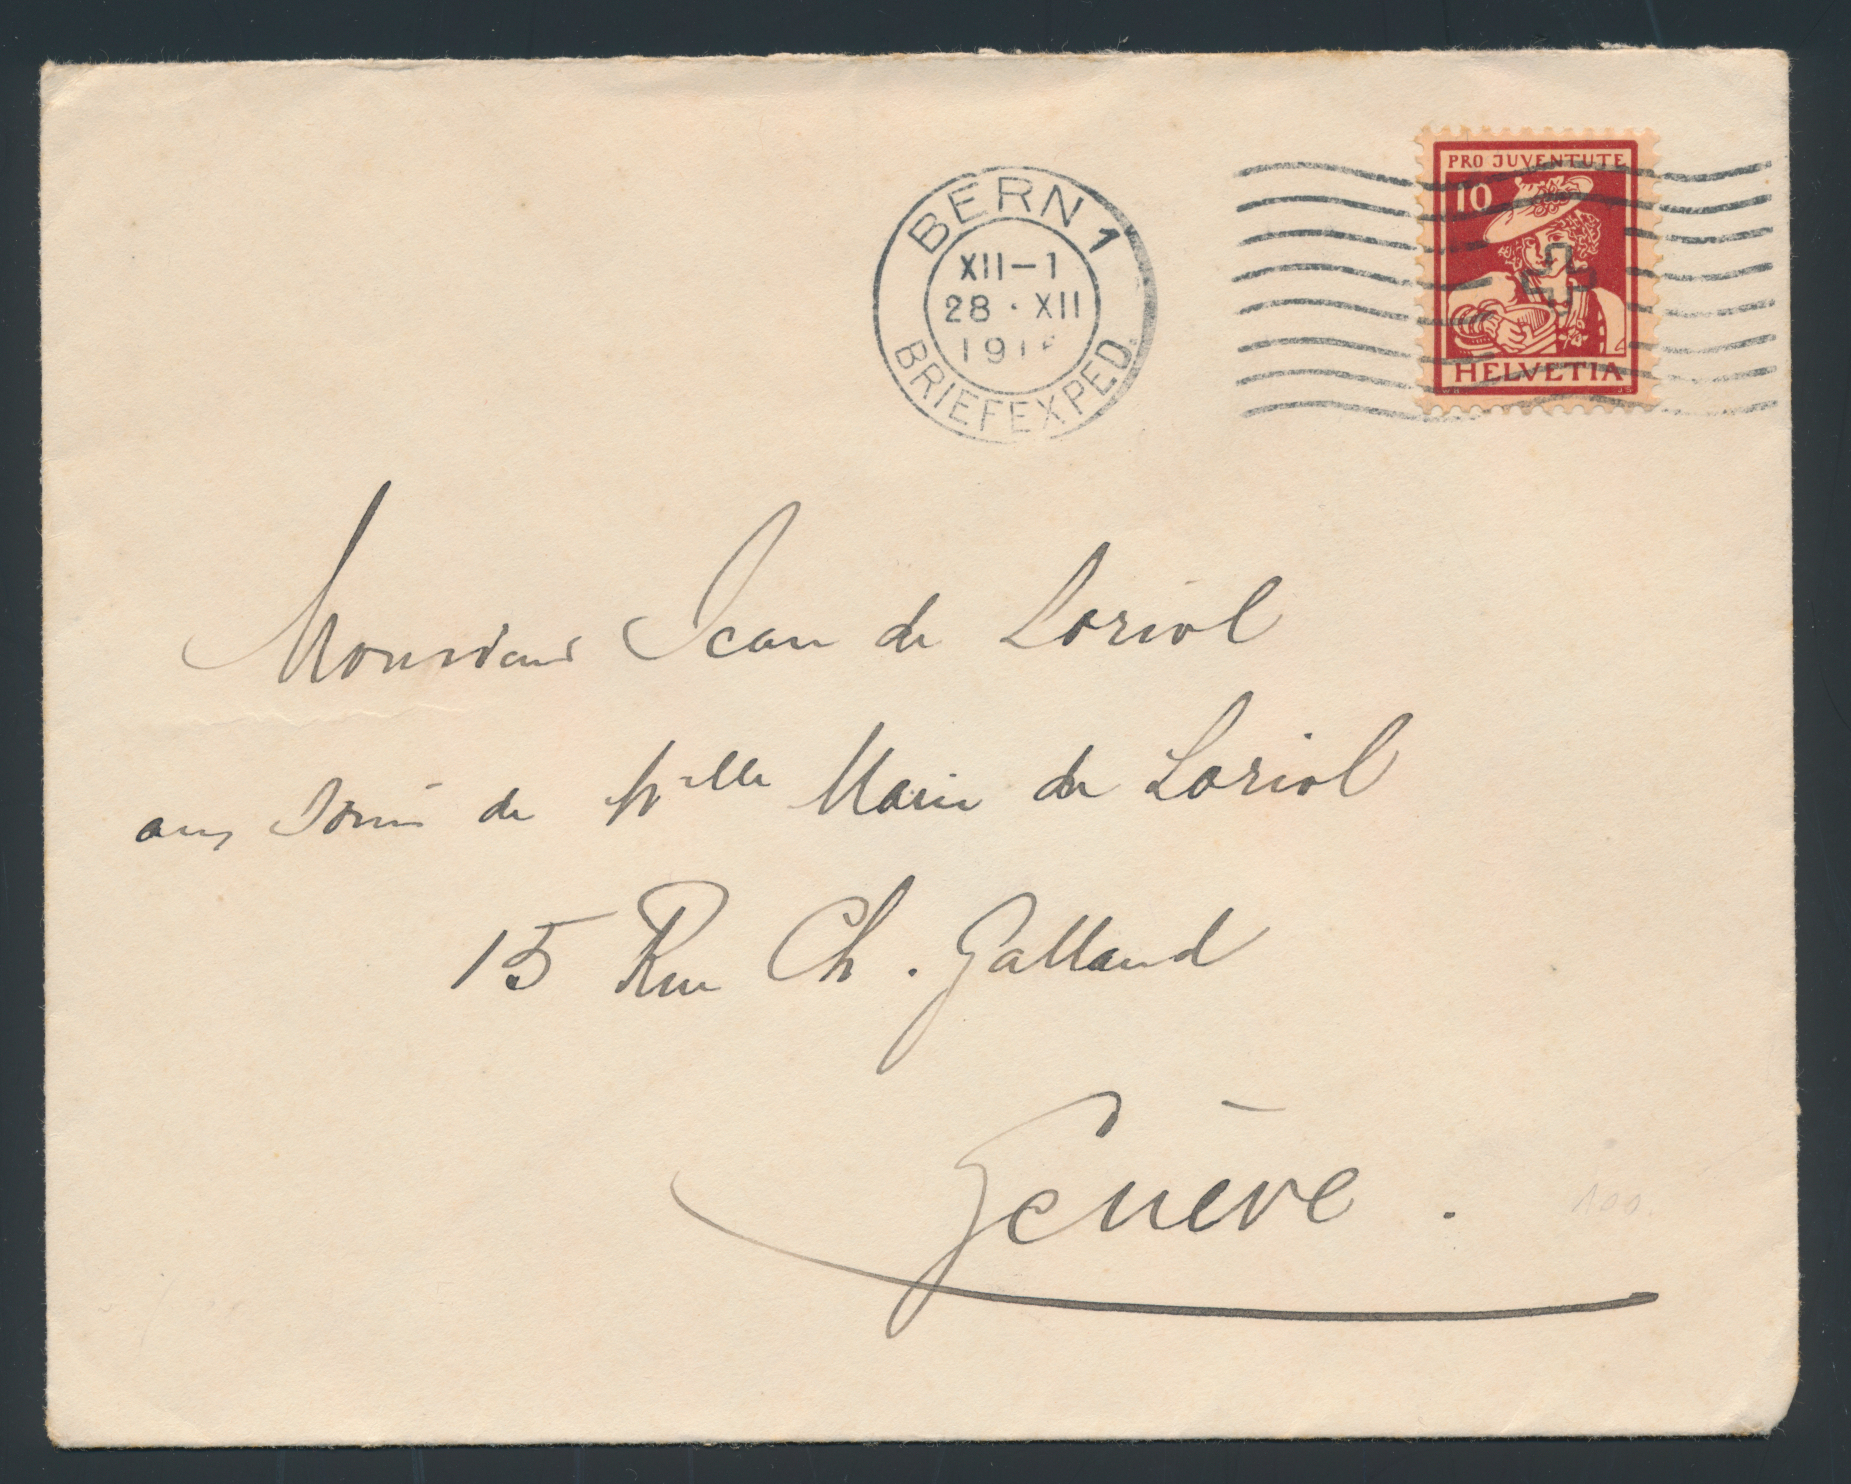 BERN 1
XII–1
28 · XII
191
BRIEFEXPED.
PRO JUVENTUTE
10
HELVETIA
Monsieur Jean de Loriol
aux soins de Mlle Marie de Loriol
15 Rue Ch. Galland
Genève.
100